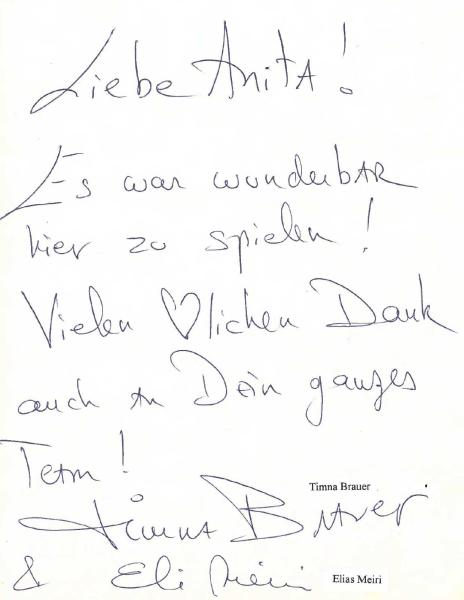 Liebe Anita!
Es war wunderbar
hier zu spielen!
Vielen ♡lichen Dank
auch an Dein ganzes
Team!
Timna Brauer
Timna Brauer
& Eli Meiri
Elias Meiri